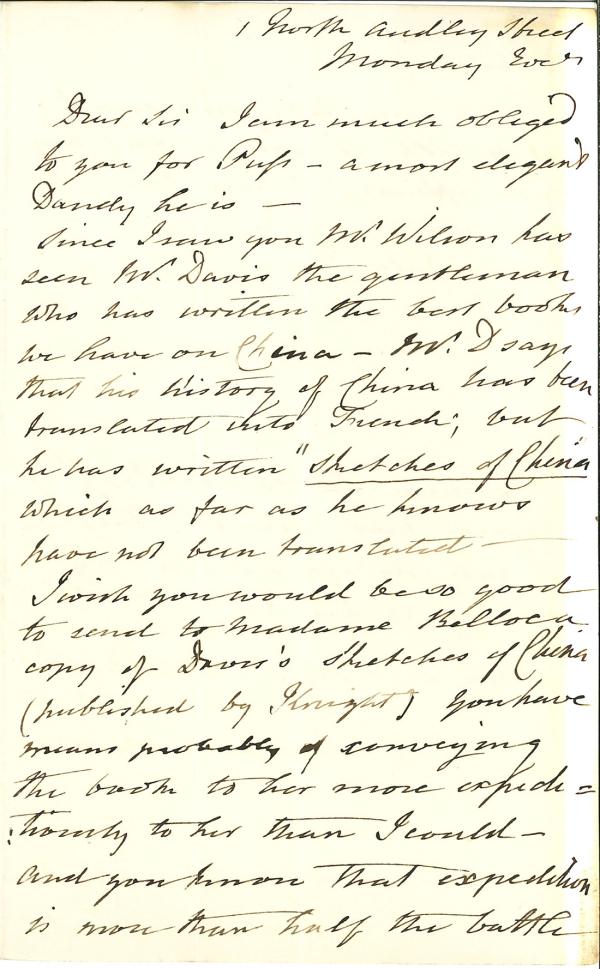 1 North Audley Street
Monday Eve
Dear Sir I am much obliged
to you for Puss – a most elegant
Dandy he is –
Since I saw you Mr. Wilson has
seen Mr. Davis the gentleman
who has written the best books
we have on China – Mr. D says
that his history of China has been
translated into French; but
he has written "Sketches of China
which as far as he knows
have not been translated –
I wish you would be so good
to send to Madame Belloc a
copy of Davis's Sketches of China
(published by Knight) you have
means probably of conveying
the book to her more expedi=
:tiously to her than I could –
and you know that expedition
is more than half the battle